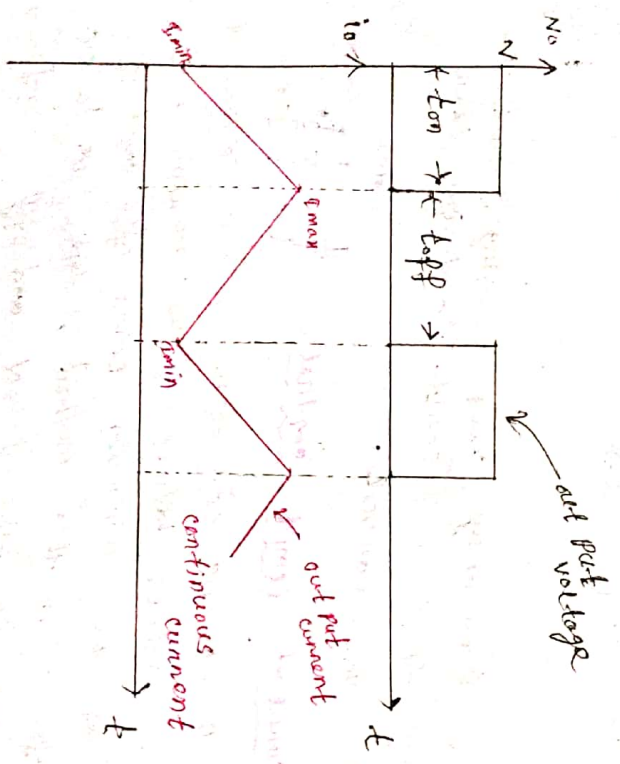 Vo
V
← ton →
← toff →
output
voltage
t
io
Imax
Imin
Imin
output
current
continuous
current
t